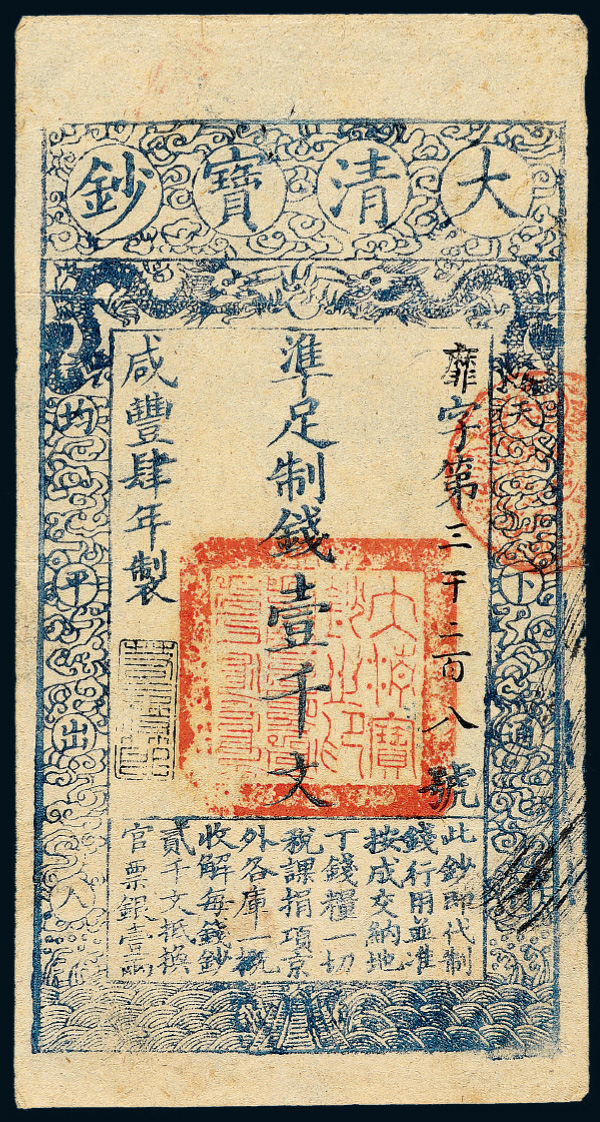 大清寶鈔
天下通行
均平出入
靡字第三千二百八號
準足制錢壹千文
咸豐肆年製
大清寶鈔之印
此鈔即代制
錢行用並准
按成交納地
丁錢糧一切
稅課捐項京
外各庫一概
收解每錢鈔
貳千文抵換
官票銀壹兩